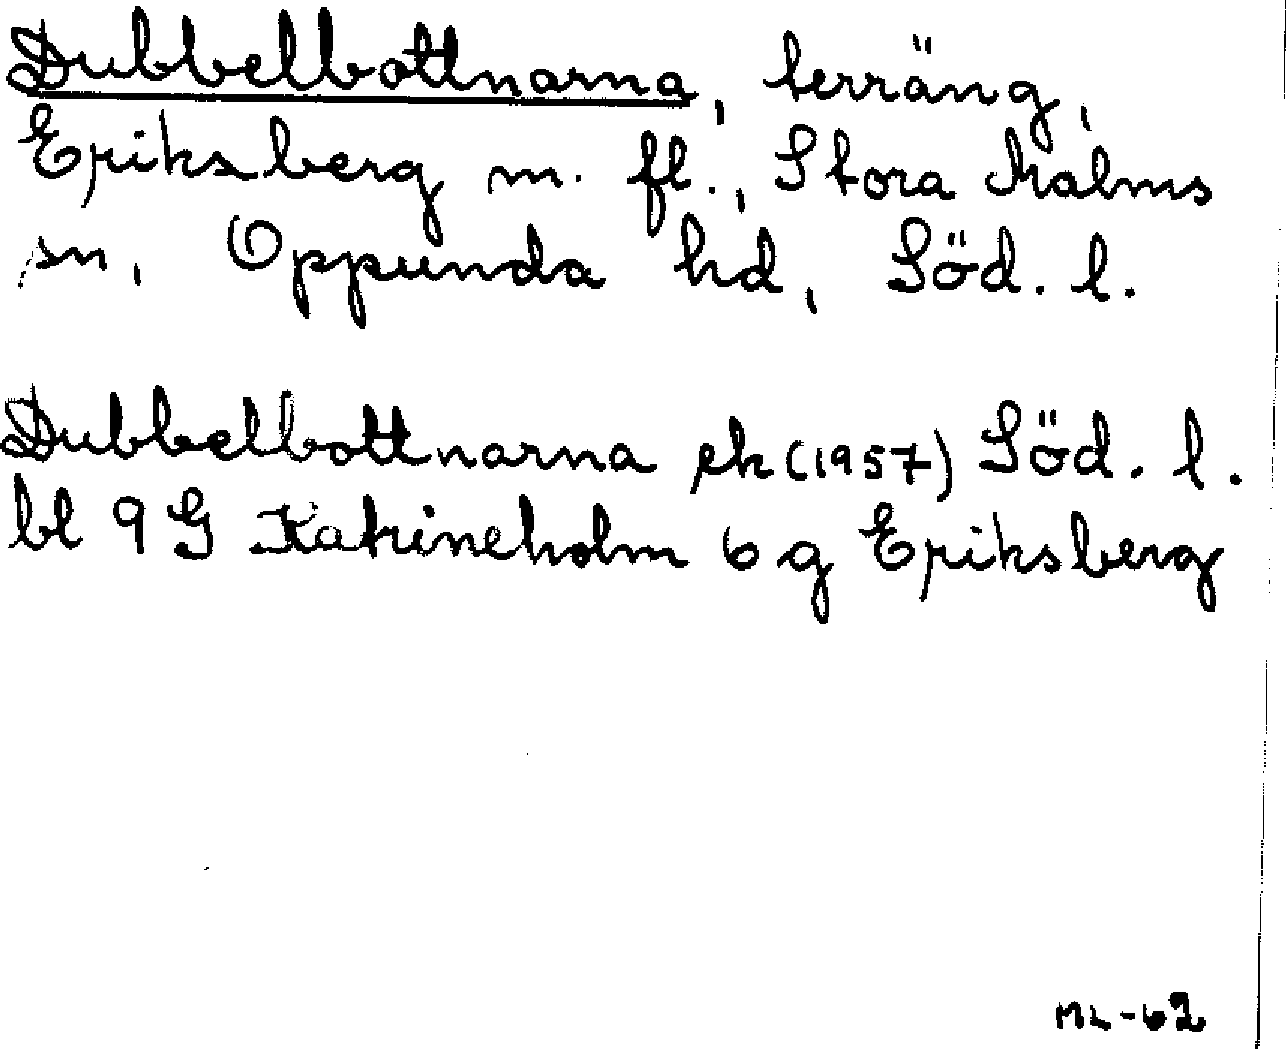 Dubbelbottnarna, terräng,
Eriksberg m. fl., Stora Malms
sn, Oppunda hd, Söd. l.
Dubbelbottnarna ek (1957) Söd. l.
bl 9 G Katrineholm 6 g Eriksberg
ML-62